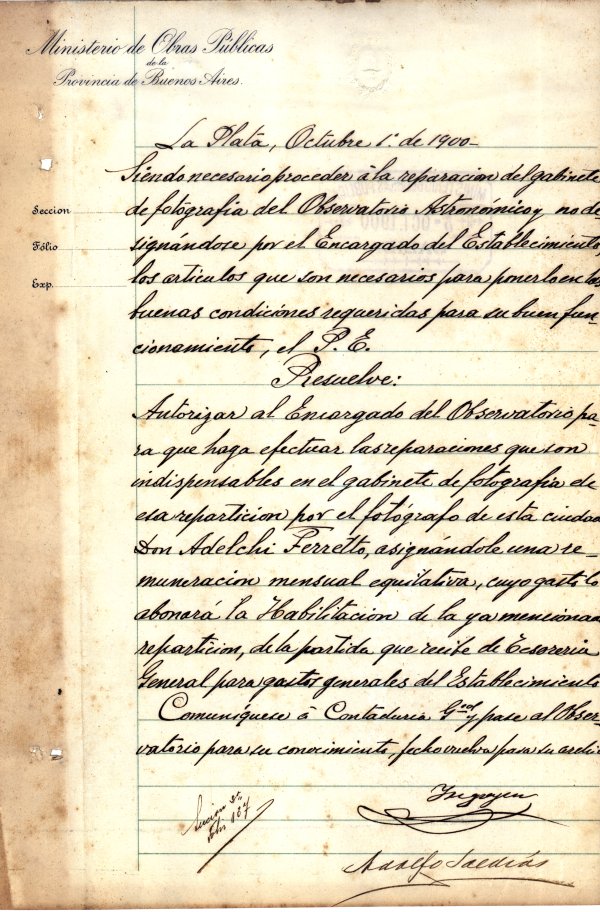 Ministerio de Obras Públicas
de la
Provincia de Buenos Aires.
La Plata, Octubre 1º de 1900-
Siendo necesario proceder á la reparacion del gabinete
Seccion
de fotografia del Observatorio Astronómico y no de
Fólio
signándose por el Encargado del Establecimiento,
Exp.
los articulos que son necesarios para ponerlo en las
buenas condiciónes requeridas para su buen fun-
cionamiento, el P. E.
Resuelve:
Autorizar al Encargado del Observatorio pa-
ra que haga efectuar las reparaciones que son
indispensables en el gabinete de fotografia de
esa reparticion por el fotógrafo de esta ciudad
Don Adelchi Ferretto, asignándole una re-
muneracion mensual equitativa, cuyo gasto lo
abonará la Habilitacion de la ya mencionad
reparticion, de la partida que recibe de Tesoreria
General para gastos generales del Establecimiento
Comuníquese á Contaduria Gral y pase al Obser-
vatorio para su conocimiento, fecho vuelva para su archi
Irigoyen
Adolfo Saldías